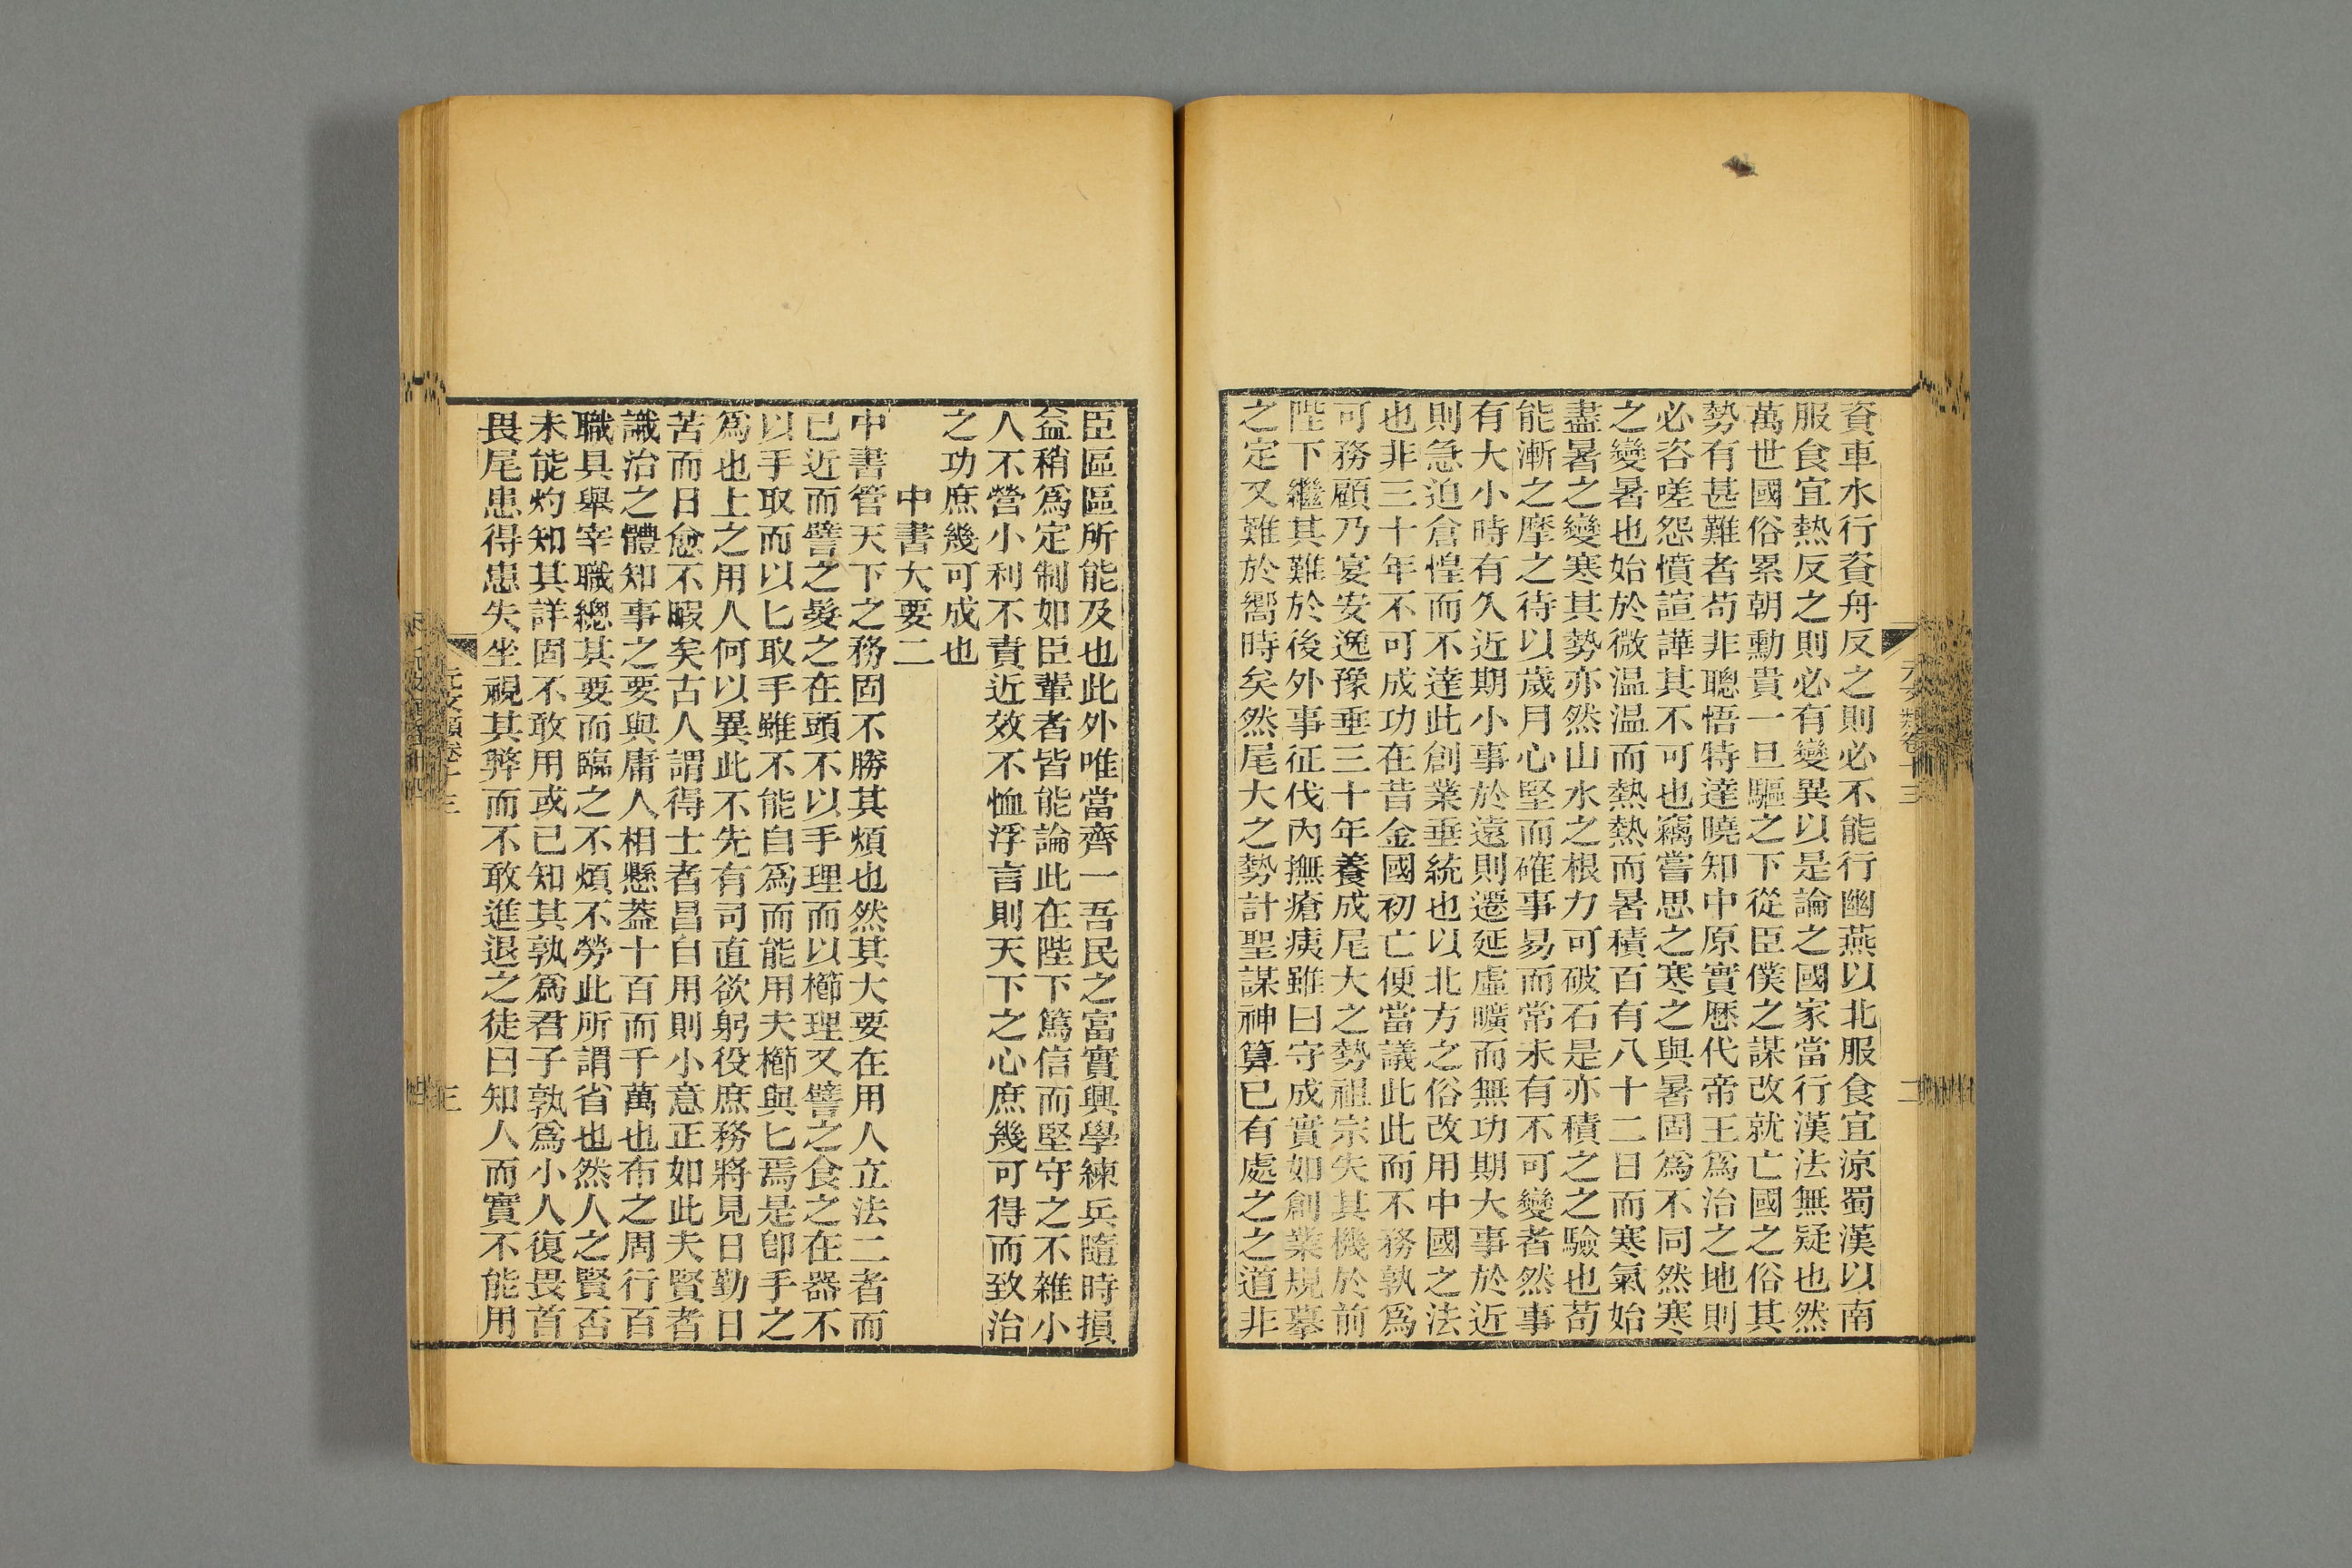 資車水行資舟反之則必不能行幽燕以北服食宜涼蜀漢以南
服食宜熱反之則必有變異以是論之國家當行漢法無疑也然
萬世國俗累朝勳貴一旦驅之下從臣僕之謀改就亡國之俗其
勢有甚難者苟非聰悟特達曉知中原實歷代帝王為治之地則
必咨嗟怨憤諠譁其不可也竊嘗思之寒之與暑固為不同然寒
之變暑也始於微温温而熱熱而暑積百有八十二日而寒氣始
盡暑之變寒其勢亦然山水之根力可破石是亦積之之驗也苟
能漸之摩之待以歲月心堅而確事易而常未有不可變者然事
有大小時有久近期小事於遠則遷延虛曠而無功期大事於近
則急迫倉惶而不達此創業垂統也以北方之俗改用中國之法
也非三十年不可成功在昔金國初亡便當議此此而不務孰為
可務顧乃宴安逸豫垂三十年養成尾大之勢祖宗失其機於前
陛下繼其難於後外事征伐內撫瘡痍雖曰守成實如創業規摹
之定又難於嚮時矣然尾大之勢計聖謀神算已有處之之道非
元文類卷十三
二
臣區區所能及也此外唯當齊一吾民之富實興學練兵隨時損
益稍為定制如臣輩者皆能論此在陛下篤信而堅守之不雜小
人不營小利不責近效不恤浮言則天下之心庶幾可得而致治
之功庶幾可成也
中書大要二
中書管天下之務固不勝其煩也然其大要在用人立法二者而
已近而譬之髮之在頭不以手理而以櫛理又譬之食之在器不
以手取而以匕取手雖不能自為而能用夫櫛與匕焉是卽手之
為也上之用人何以異此不先有司直欲躬役庶務將見日勤日
苦而日愈不暇矣古人謂得士者昌自用則小意正如此夫賢者
識治之體知事之要與庸人相懸蓋十百而千萬也布之周行百
職具舉宰職總其要而臨之不煩不勞此所謂省也然人之賢否
未能灼知其詳固不敢用或已知其孰為君子孰為小人復畏首
畏尾患得患失坐視其弊而不敢進退之徒曰知人而實不能用
元文類卷十三
三